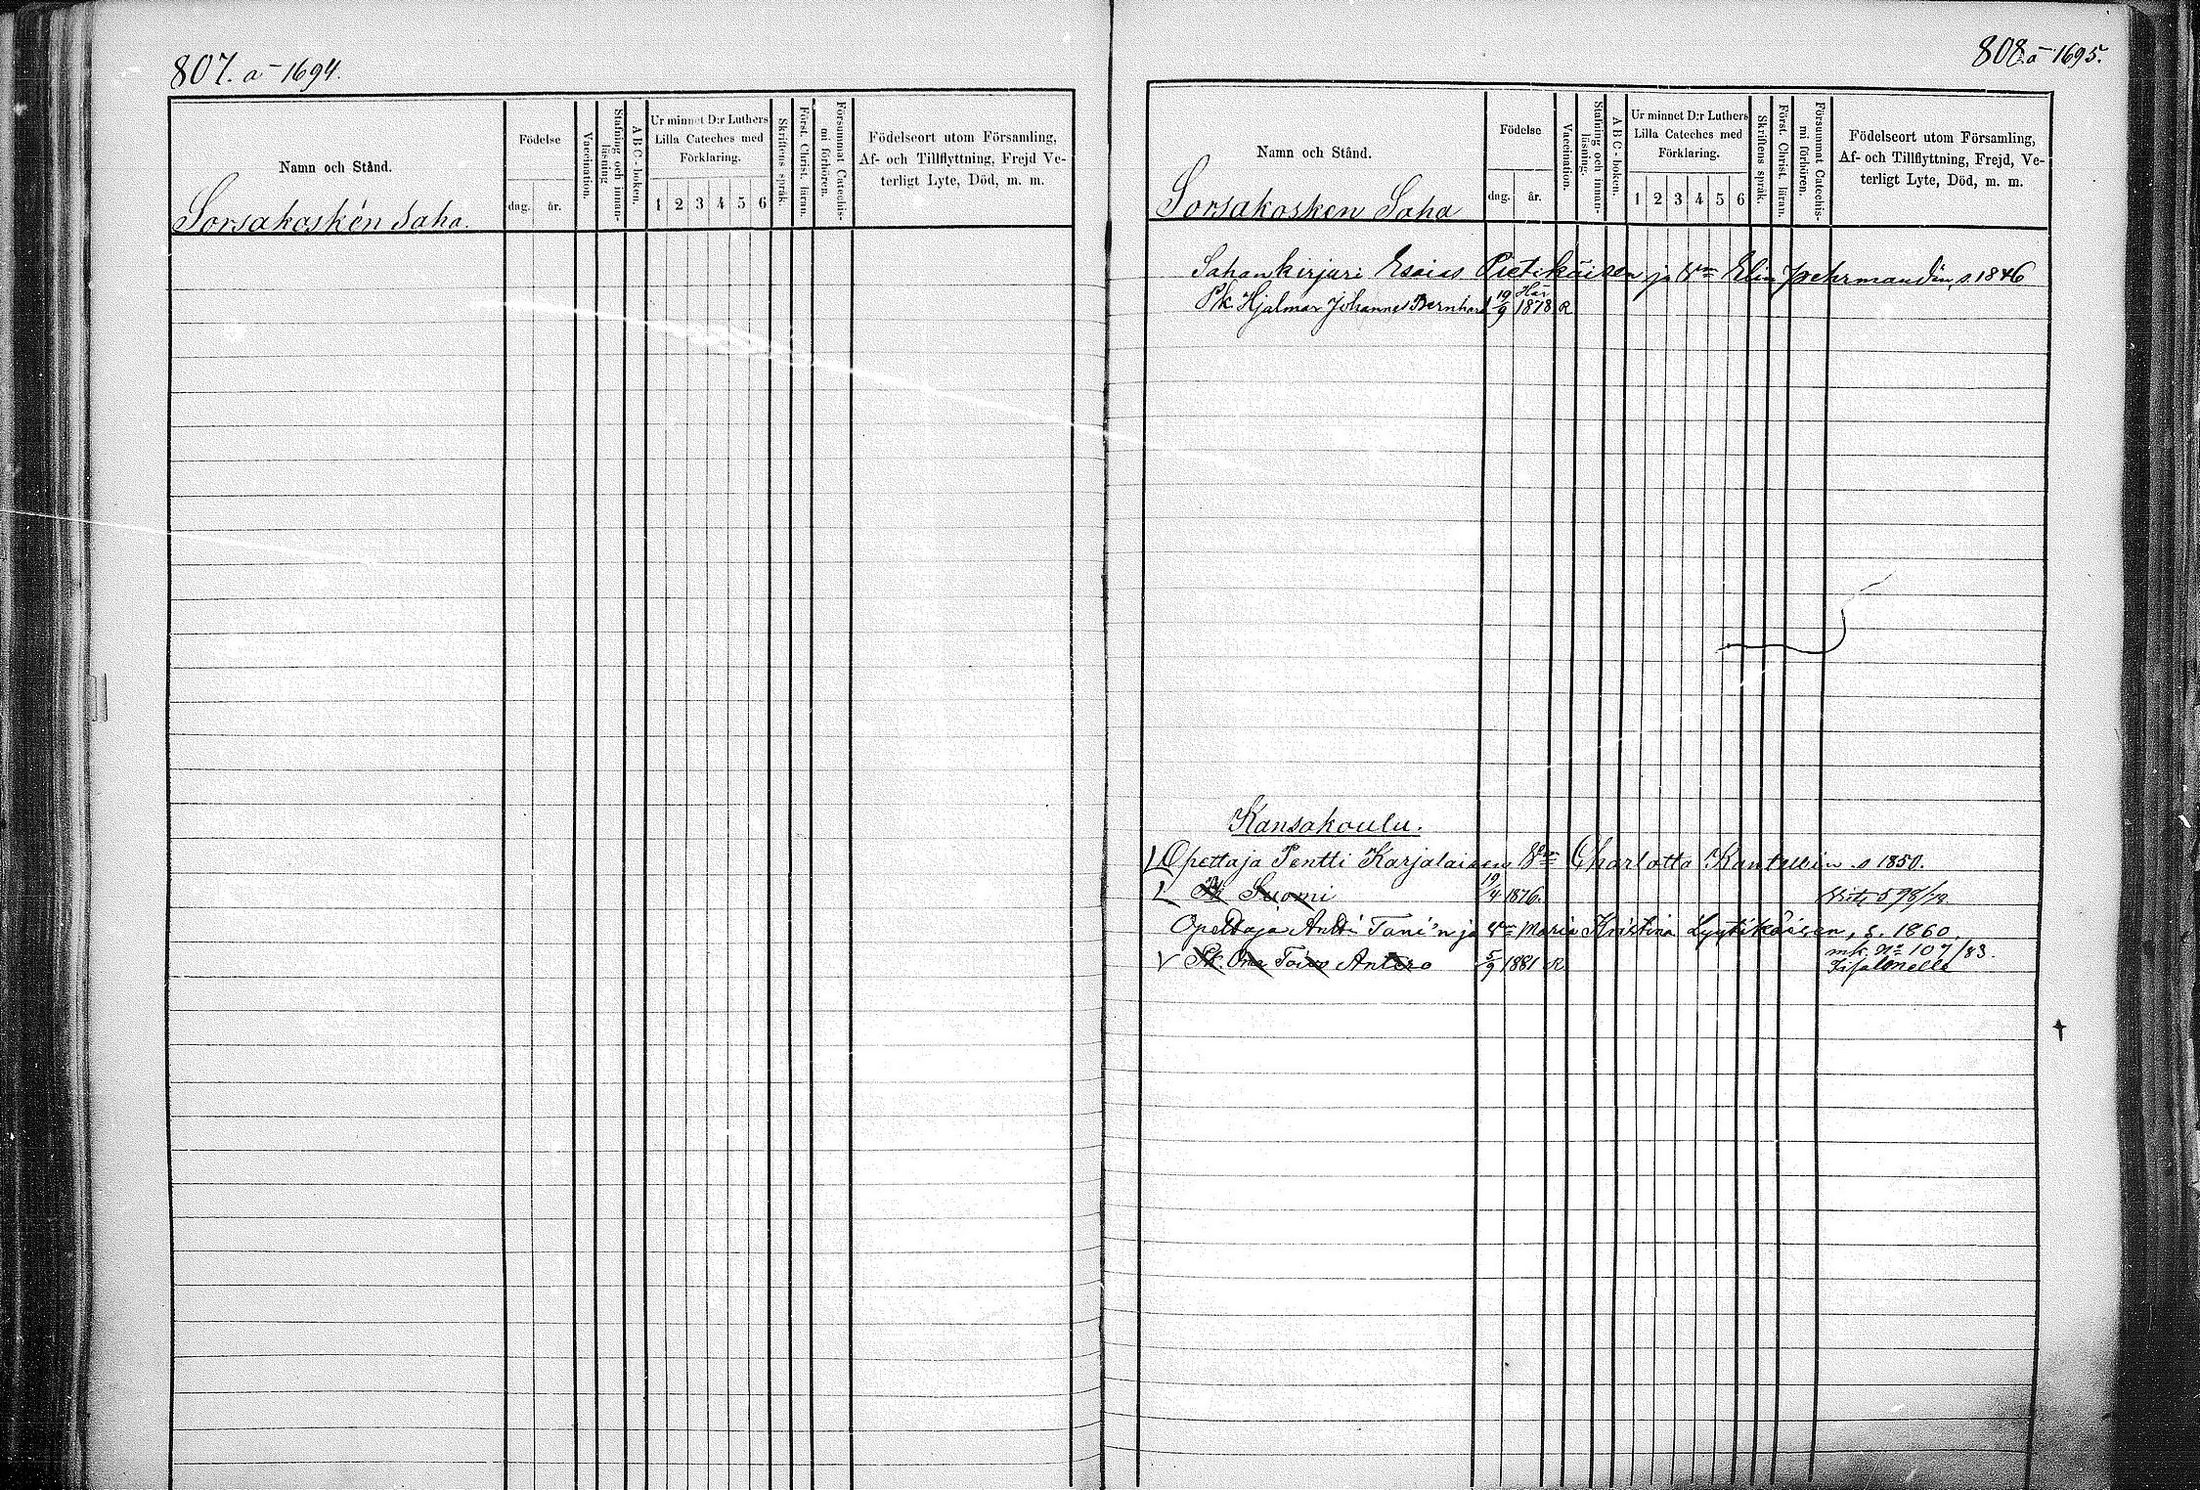 807. a - 1694.
Namn och Stånd.
Sorsakosken Saha.
Födelse
dag.
år.
Vaccination.
Stafning och innan-
läsning
A B C - boken.
Ur minnet D:r Luthers
Lilla Cateches med
Förklaring.
1 2 3 4 5 6
Skriftens språk.
Först. Christ. läran.
Försummat Catechis-
mi förhören.
Födelseort utom Församling,
Af- och Tillflyttning, Frejd Ve-
terligt Lyte, Död, m. m.
808 a - 1695.
Namn och Stånd.
Sorsakosken Saha
Födelse
dag.
år.
Vaccination.
Stafning och innan-
läsning.
A B C - boken.
Ur minnet D:r Luthers
Lilla Cateches med
Förklaring.
1 2 3 4 5 6
Skriftens språk.
Först. Christ. läran.
Försummat Catechis-
mi förhören.
Födelseort utom Församling,
Af- och Tillflyttning, Frejd, Ve-
terligt Lyte, Död, m. m.
Sahankirjuri Esaias Pietikäisen ja Vm Elin s. 1846
Pk Hjalmar Johannes Bernhard 19/9 1878 R
Kansakoulu.
Opettaja Pentti Karjalaisen Vm Charlotta s 1850.
Pk Suomi 19/4 1876. 598/78.
Opettaja Antti Tani'n ja Vm Maria Kristina Lyytikäisen, s. 1860,
mk. No 107/83.
V Pk. Onni Toivo Antero 5/9 1881 R